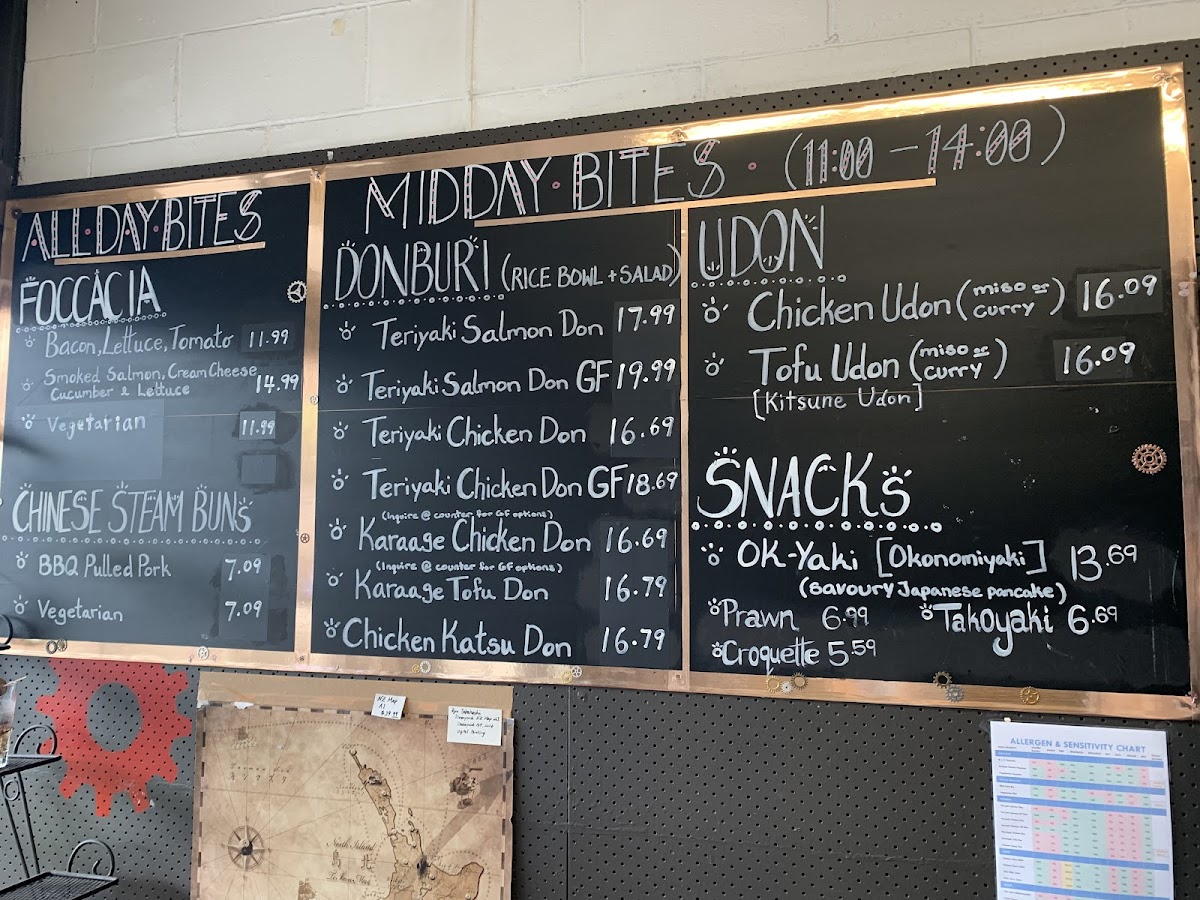 ALL·DAY·BITES
FOCCACIA
Bacon, Lettuce, Tomato 11.99
Smoked Salmon, Cream Cheese
Cucumber & Lettuce 14.99
Vegetarian 11.99
CHINESE STEAM BUNS
BBQ Pulled Pork 7.09
Vegetarian 7.09
MIDDAY·BITES · (11:00 - 14:00)
DONBURI (RICE BOWL + SALAD)
Teriyaki Salmon Don 17.99
Teriyaki Salmon Don GF 19.99
Teriyaki Chicken Don 16.69
Teriyaki Chicken Don GF 18.69
(Inquire @ counter for GF options)
Karaage Chicken Don 16.69
(Inquire @ counter for GF options)
Karaage Tofu Don 16.79
Chicken Katsu Don 16.79
UDON
Chicken Udon (miso or curry) 16.09
Tofu Udon (miso or curry) 16.09
[Kitsune Udon]
SNACKs
OK-Yaki [Okonomiyaki] 13.69
(Savoury Japanese pancake)
Prawn 6.99 Takoyaki 6.69
Croquette 5.59
NZ Map
A1
North Island
ALLERGEN & SENSITIVITY CHART